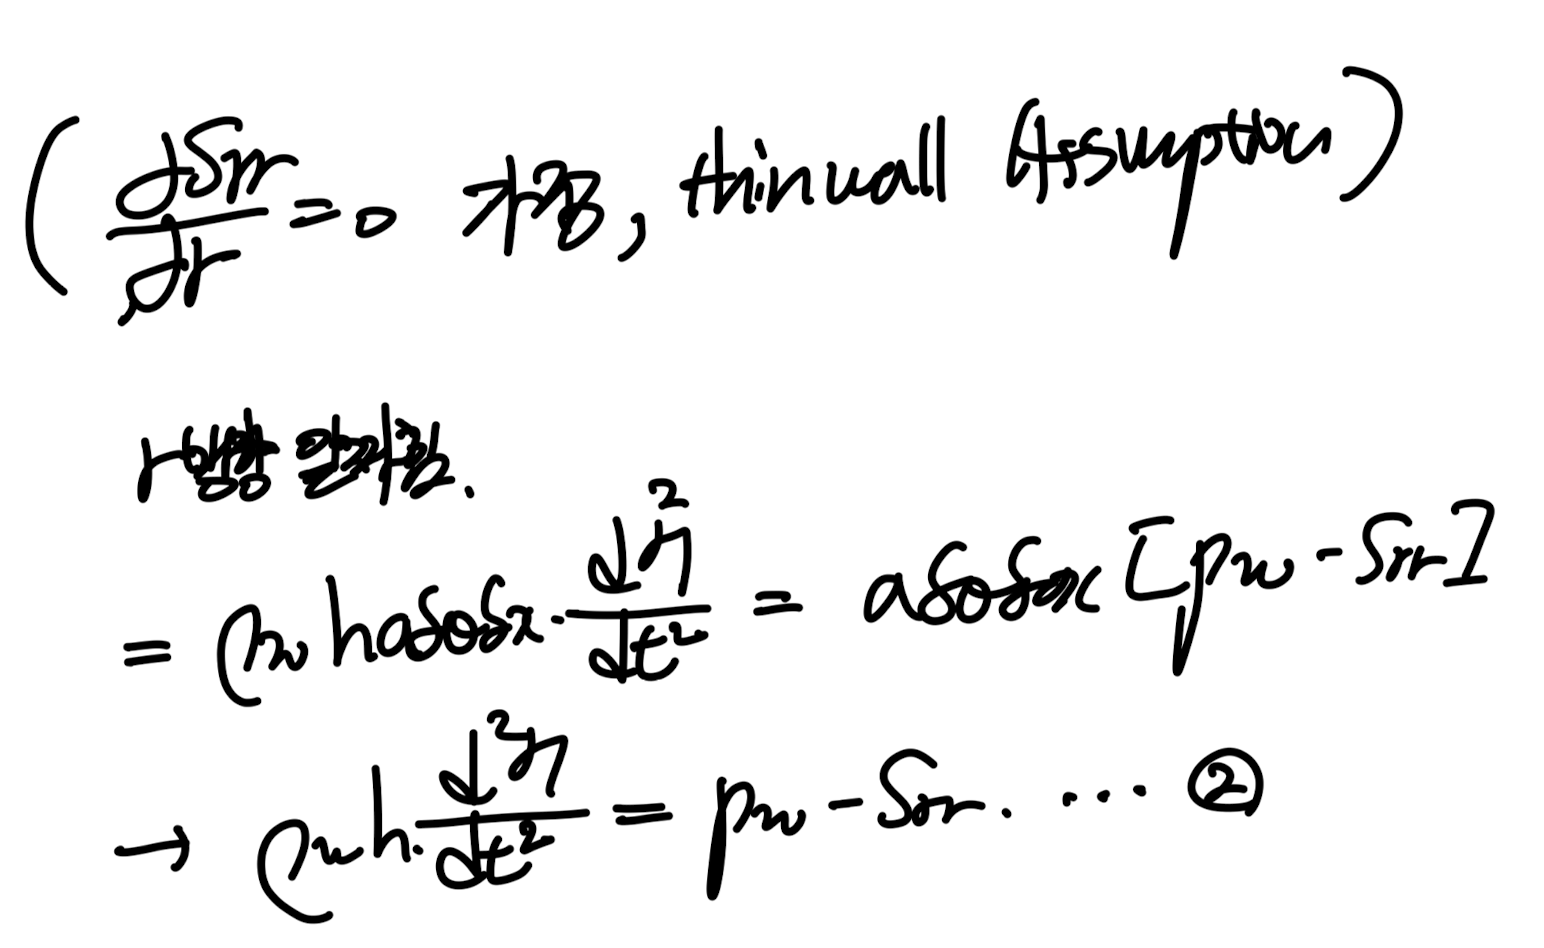 (∂Srr/∂r = 0 가정, thin wall Assumption)
r방향 알짜힘.
= ρw h a δθ δx · d²η/dt² = a δθ δx [pw - Srr]
→ ρw h · d²η/dt² = pw - Srr. ... ②